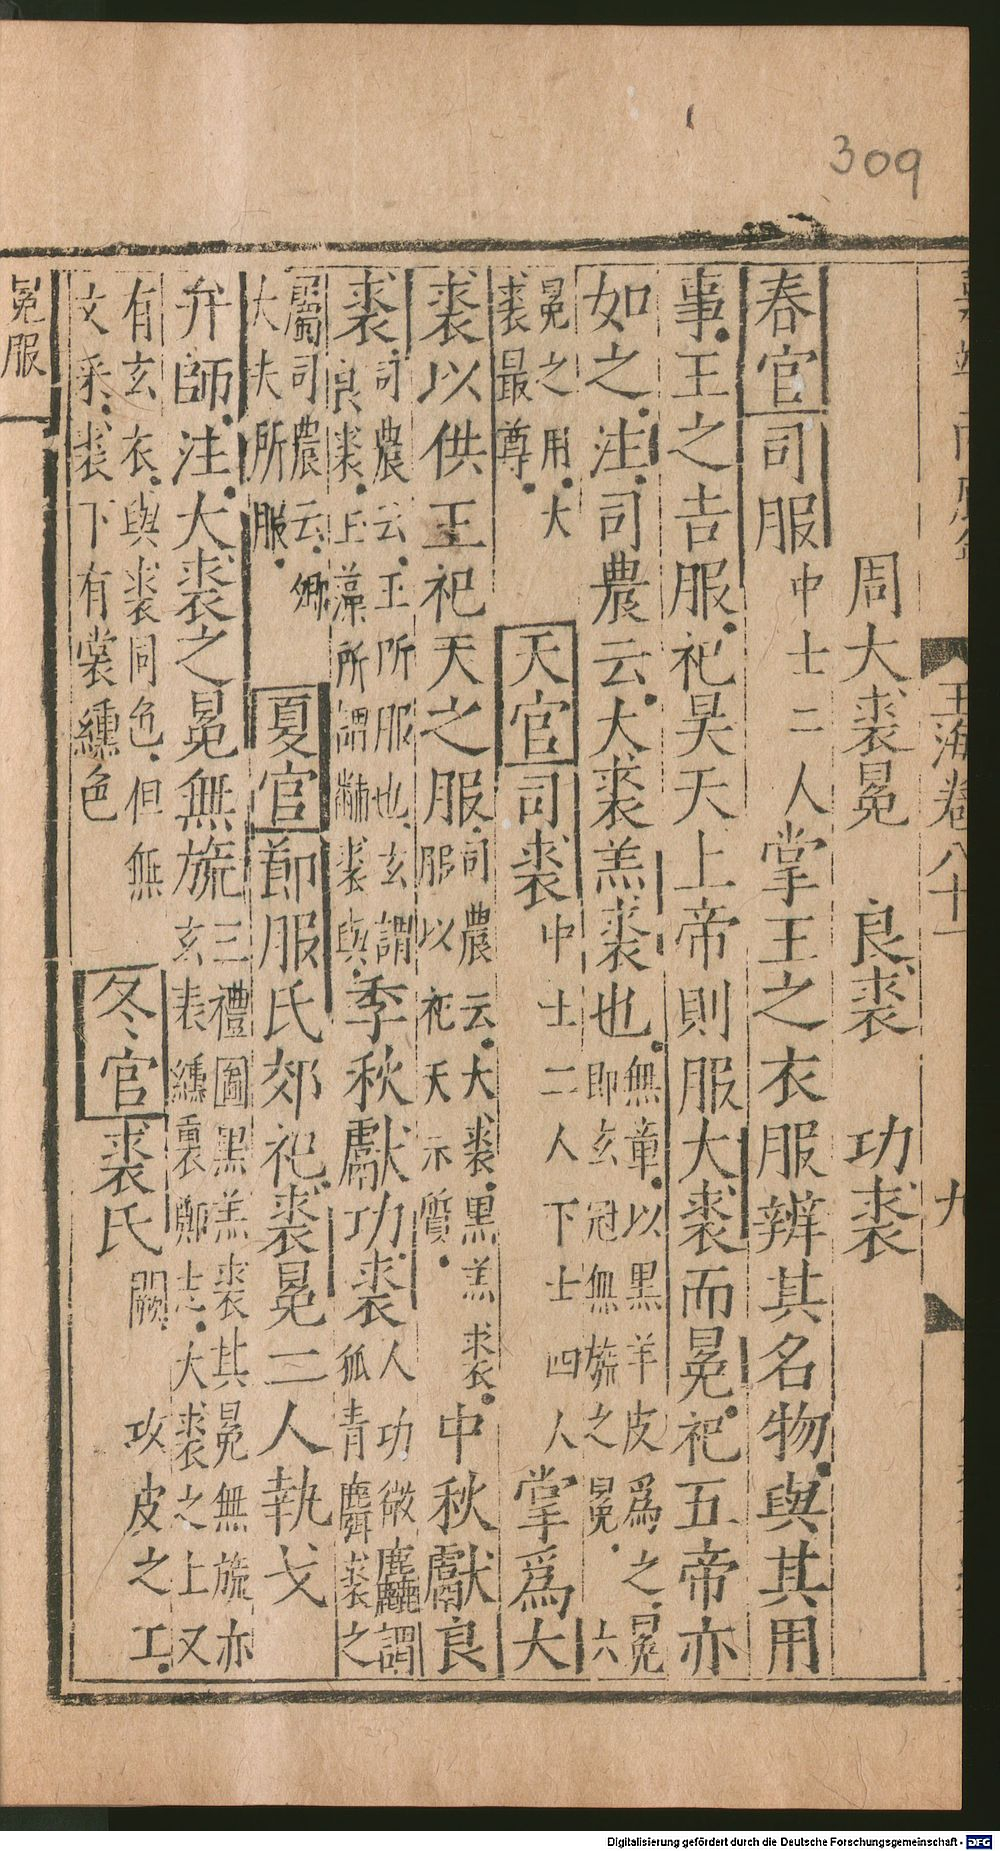 309
玉海卷八十一
九
周大裘冕 良裘 功裘
春官司服中士二人掌王之衣服辨其名物與其用
事王之吉服祀昊天上帝則服大裘而冕祀五帝亦
如之注司農云大裘羔裘也無章以黑羊皮爲之冕
即玄冠無旒之冕六
冕之用大
裘最尊
天官司裘中士二人下士四人掌爲大
裘以供王祀天之服司農云大裘黑羔裘
服以祀天示質
中秋獻良
裘司農云王所服也玄謂
良裘玉藻所謂黼裘與
季秋獻功裘人功微麤謂
狐青麛裘之
屬司農云卿
大夫所服
夏官節服氏郊祀裘冕二人執戈
弁師注大裘之冕無旒三禮圖黑羔裘其冕無旒亦
玄表纁裏鄭志大裘之上又
有玄衣與裘同色但無
文采裘下有裳纁色
冬官裘氏闕
攻皮之工
冕服
Digitalisierung gefördert durch die Deutsche Forschungsgemeinschaft - DFG